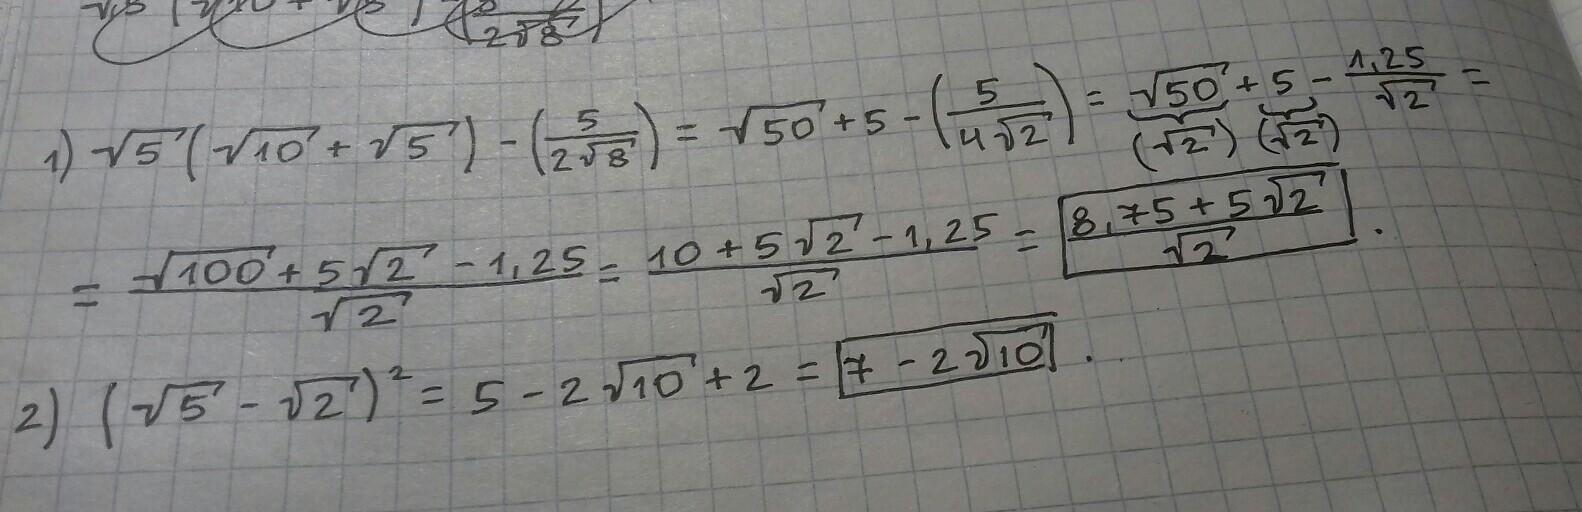 2√8
1) √5 (√10 + √5) - (5/(2√8)) = √50 + 5 - (5/(4√2)) = √50 + 5 - 1,25/√2 =
(√2) (√2)
= (√100 + 5√2 - 1,25)/√2 = (10 + 5√2 - 1,25)/√2 = (8,75 + 5√2)/√2 .
2) (√5 - √2)² = 5 - 2√10 + 2 = 7 - 2√10 .